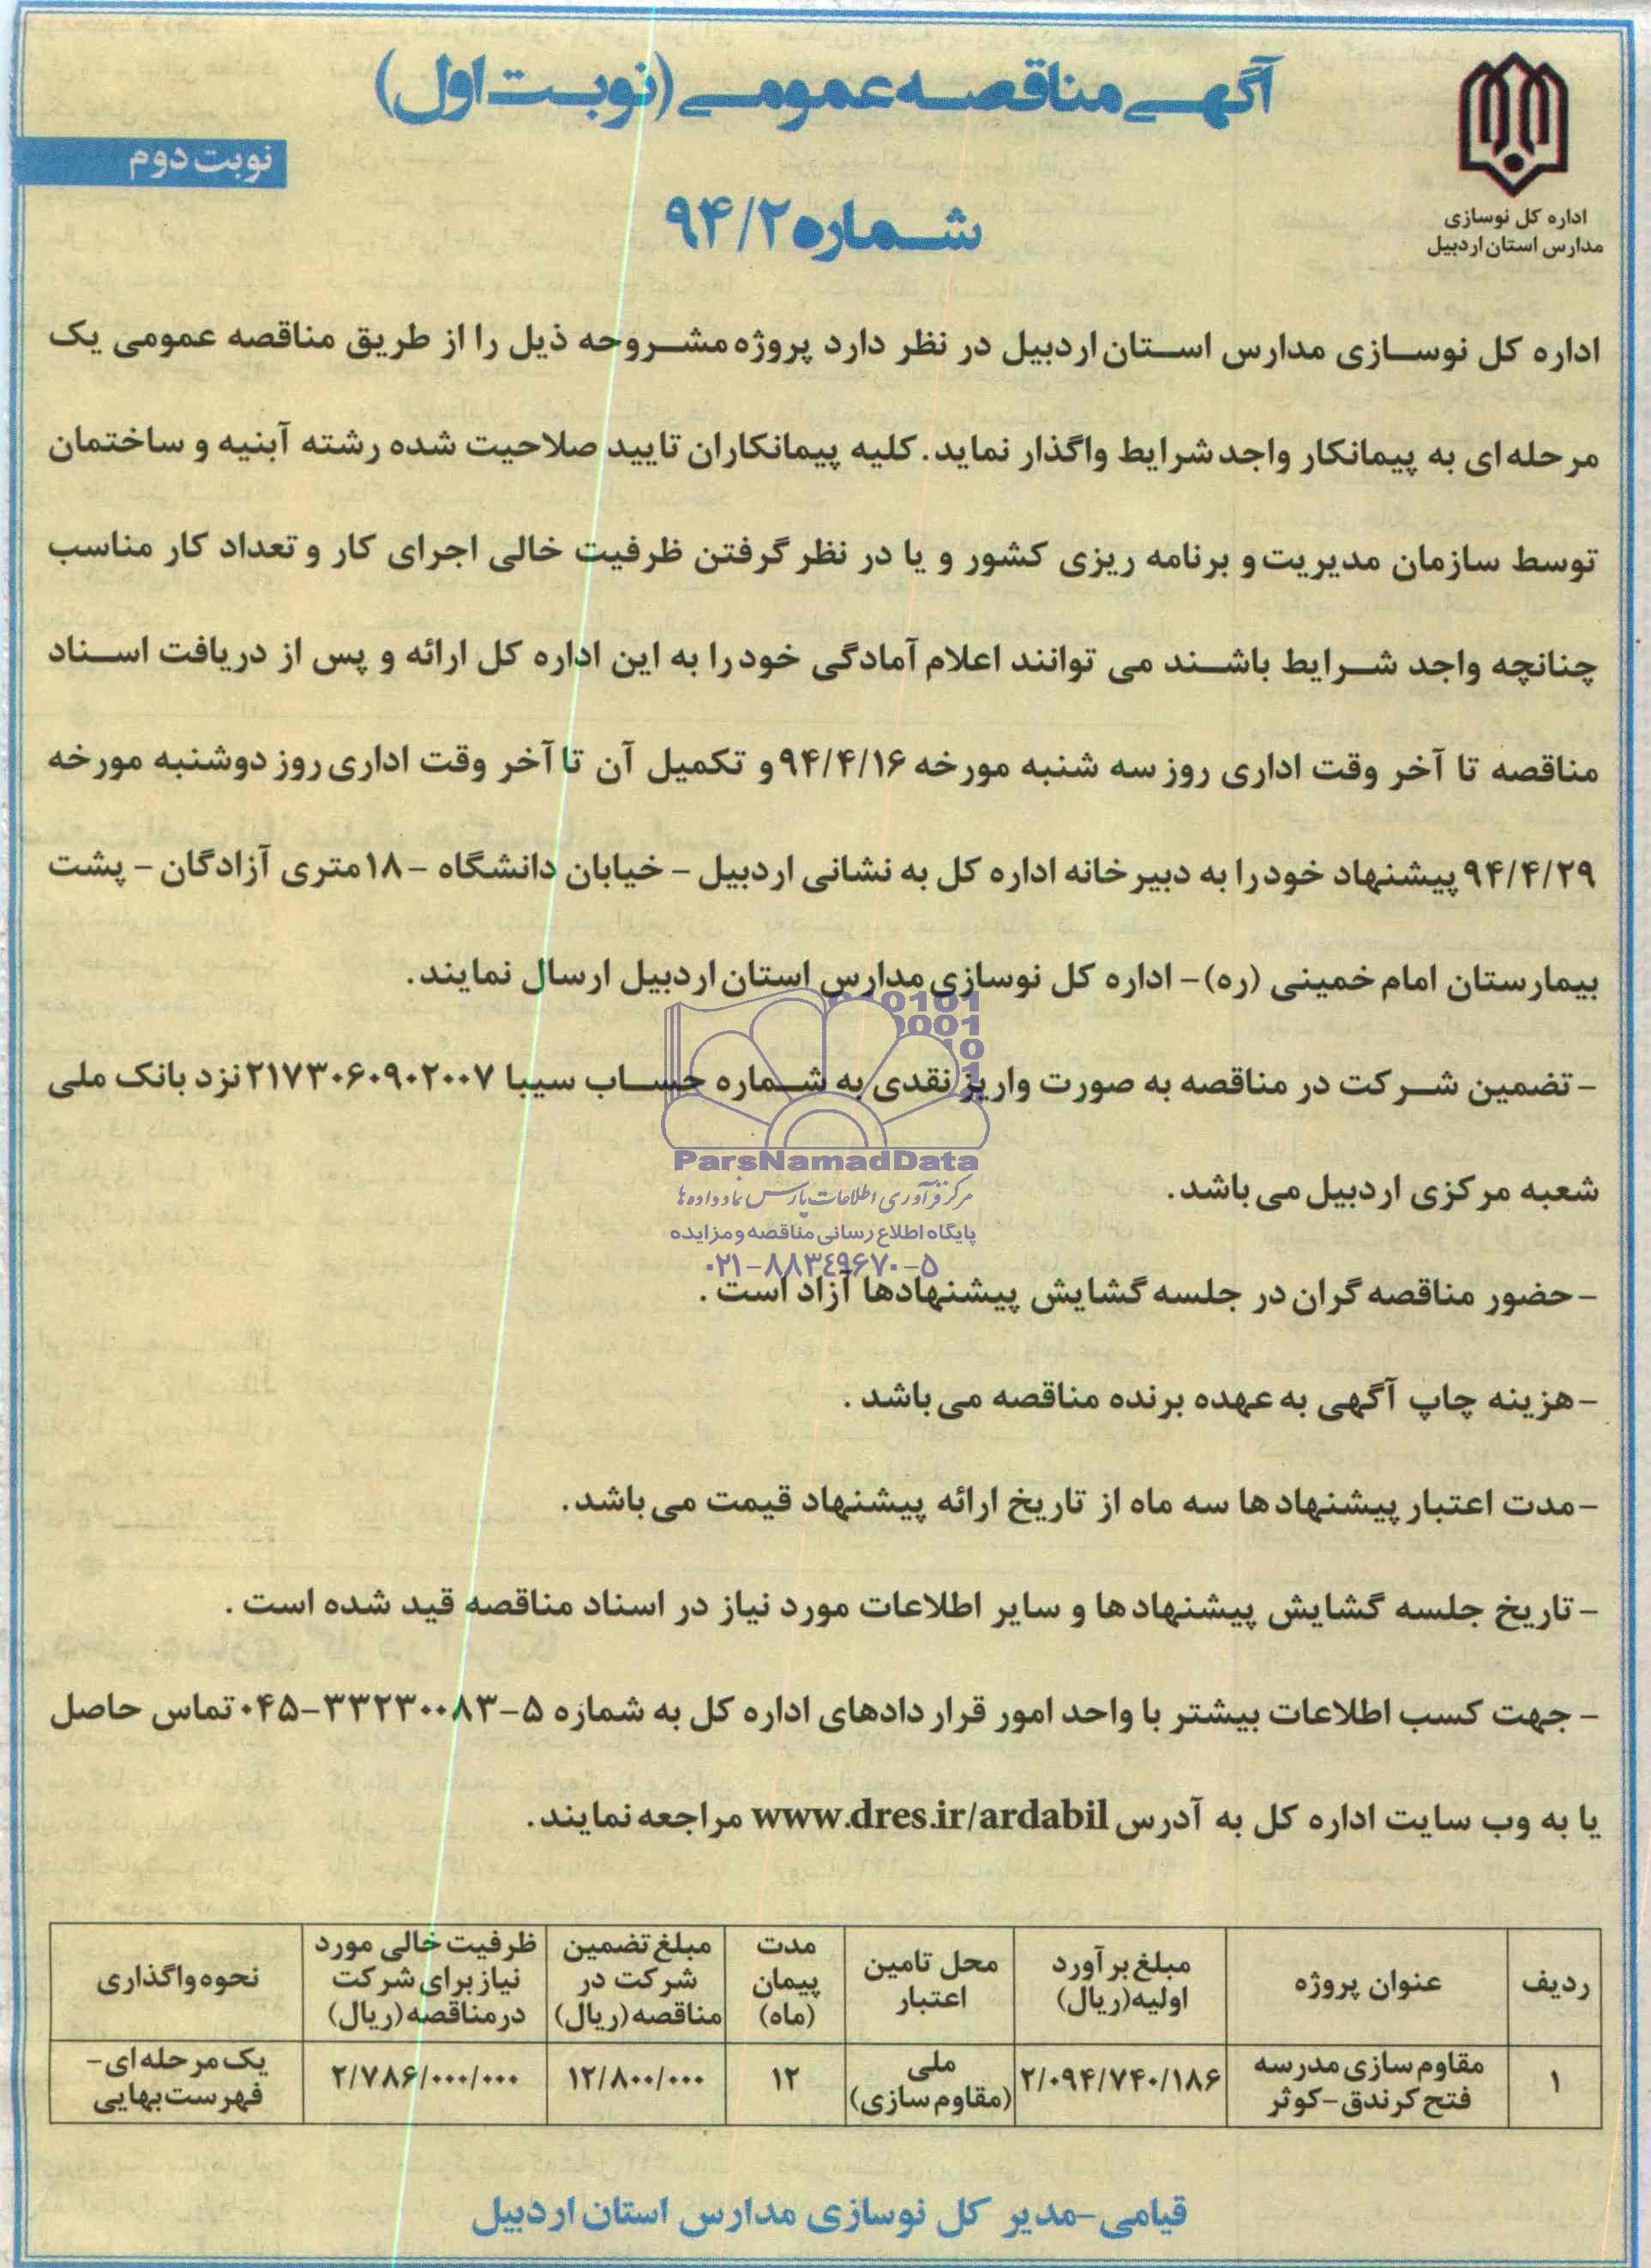 آگهی مناقصه عمومی (نوبت اول)
نوبت دوم
شماره ۹۴/۲
اداره کل نوسازی
مدارس استان اردبیل
اداره کل نوسازی مدارس استان اردبیل در نظر دارد پروژه مشروحه ذیل را از طریق مناقصه عمومی یک
مرحله ای به پیمانکار واجد شرایط واگذار نماید. کلیه پیمانکاران تایید صلاحیت شده رشته آبنیه و ساختمان
توسط سازمان مدیریت و برنامه ریزی کشور و یا در نظر گرفتن ظرفیت خالی اجرای کار و تعداد کار مناسب
چنانچه واجد شرایط باشند می توانند اعلام آمادگی خود را به این اداره کل ارائه و پس از دریافت اسناد
مناقصه تا آخر وقت اداری روز سه شنبه مورخه ۹۴/۴/۱۶ و تکمیل آن تا آخر وقت اداری روز دوشنبه مورخه
۹۴/۴/۲۹ پیشنهاد خود را به دبیرخانه اداره کل به نشانی اردبیل - خیابان دانشگاه - ۱۸متری آزادگان - پشت
بیمارستان امام خمینی (ره) - اداره کل نوسازی مدارس استان اردبیل ارسال نمایند.
- تضمین شرکت در مناقصه به صورت واریز نقدی به شماره حساب سیبا ۲۱۷۳۰۶۰۹۰۲۰۰۷ نزد بانک ملی
شعبه مرکزی اردبیل می باشد.
- حضور مناقصه گران در جلسه گشایش پیشنهادها آزاد است .
- هزینه چاپ آگهی به عهده برنده مناقصه می باشد .
- مدت اعتبار پیشنهادها سه ماه از تاریخ ارائه پیشنهاد قیمت می باشد.
- تاریخ جلسه گشایش پیشنهادها و سایر اطلاعات مورد نیاز در اسناد مناقصه قید شده است .
- جهت کسب اطلاعات بیشتر با واحد امور قراردادهای اداره کل به شماره ۵-۰۴۵-۳۳۲۳۰۰۸۳ تماس حاصل
یا به وب سایت اداره کل به آدرس www.dres.ir/ardabil مراجعه نمایند.
ParsNamadData
مرکز فرآوری اطلاعات پارس نماد داده ها
پایگاه اطلاع رسانی مناقصه و مزایده
۰۲۱-۸۸۳۴۹۶۷۰-۵
ردیف | عنوان پروژه | مبلغ برآورد اولیه(ریال) | محل تامین اعتبار | مدت پیمان (ماه) | مبلغ تضمین شرکت در مناقصه(ریال) | ظرفیت خالی مورد نیاز برای شرکت در مناقصه(ریال) | نحوه واگذاری
۱ | مقاوم سازی مدرسه فتح کرندق-کوثر | ۲/۰۹۴/۷۴۰/۱۸۶ | ملی (مقاوم سازی) | ۱۲ | ۱۲/۸۰۰/۰۰۰ | ۲/۷۸۶/۰۰۰/۰۰۰ | یک مرحله ای- فهرست بهایی
قیامی-مدیر کل نوسازی مدارس استان اردبیل